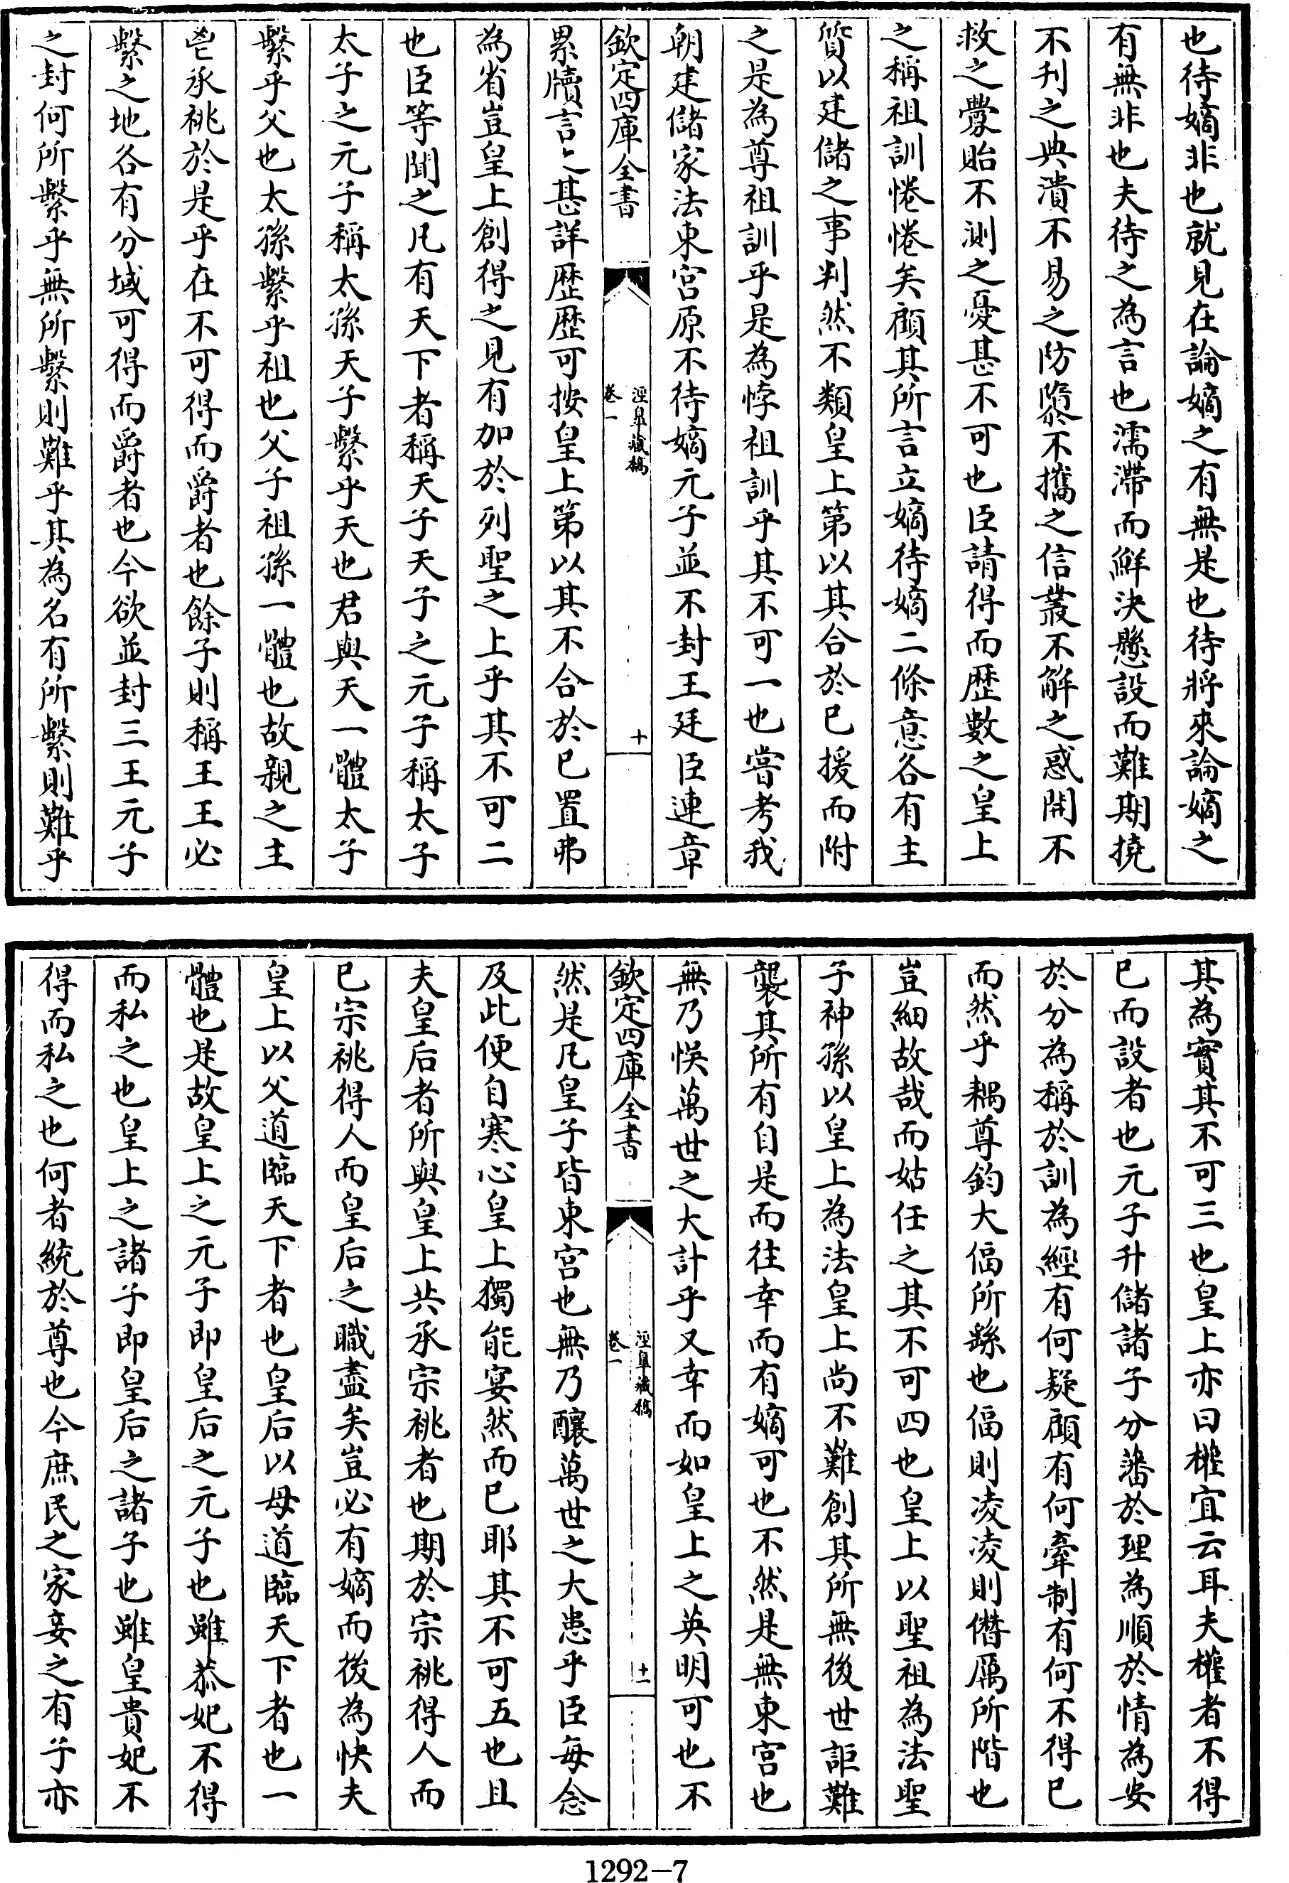 也待嫡非也就見在論嫡之有無是也待將來論嫡之
有無非也夫待之為言也濡滯而鮮決懸設而難期撓
不刋之典潰不易之防隳不攜之信叢不解之惑開不
救之釁貽不測之憂甚不可也臣請得而歷數之皇上
之稱祖訓惓惓矣顧其所言立嫡待嫡二條意各有主
質以建儲之事判然不類皇上第以其合於已援而附
之是為尊祖訓乎是為悖祖訓乎其不可一也嘗考我
朝建儲家法東宮原不待嫡元子並不封王廷臣連章
欽定四庫全書
涇臯藏稿
卷一
十
累牘言之甚詳歷歷可按皇上第以其不合於已置弗
為省豈皇上創得之見有加於列聖之上乎其不可二
也臣等聞之凡有天下者稱天子天子之元子稱太子
太子之元子稱太孫天子繫乎天也君與天一體太子
繫乎父也太孫繫乎祖也父子祖孫一體也故親之主
鬯承祧於是乎在不可得而爵者也餘子則稱王王必
繫之地各有分域可得而爵者也今欲並封三王元子
之封何所繫乎無所繫則難乎其為名有所繫則難乎
其為實其不可三也皇上亦曰權宜云耳夫權者不得
已而設者也元子升儲諸子分藩於理為順於情為安
於分為稱於訓為經有何疑顧有何牽制有何不得已
而然乎耦尊鈞大偪所繇也偪則凌凌則僭厲所階也
豈細故哉而姑任之其不可四也皇上以聖祖為法聖
子神孫以皇上為法皇上尚不難創其所無後世詎難
襲其所有自是而往幸而有嫡可也不然是無東宮也
無乃悞萬世之大計乎又幸而如皇上之英明可也不
欽定四庫全書
涇臯藏稿
卷一
十一
然是凡皇子皆東宮也無乃釀萬世之大患乎臣每念
及此便自寒心皇上獨能宴然而已耶其不可五也且
夫皇后者所與皇上共承宗祧者也期於宗祧得人而
已宗祧得人而皇后之職盡矣豈必有嫡而後為快夫
皇上以父道臨天下者也皇后以母道臨天下者也一
體也是故皇上之元子即皇后之元子也雖恭妃不得
而私之也皇上之諸子即皇后之諸子也雖皇貴妃不
得而私之也何者統於尊也今庶民之家妾之有子亦
1292-7